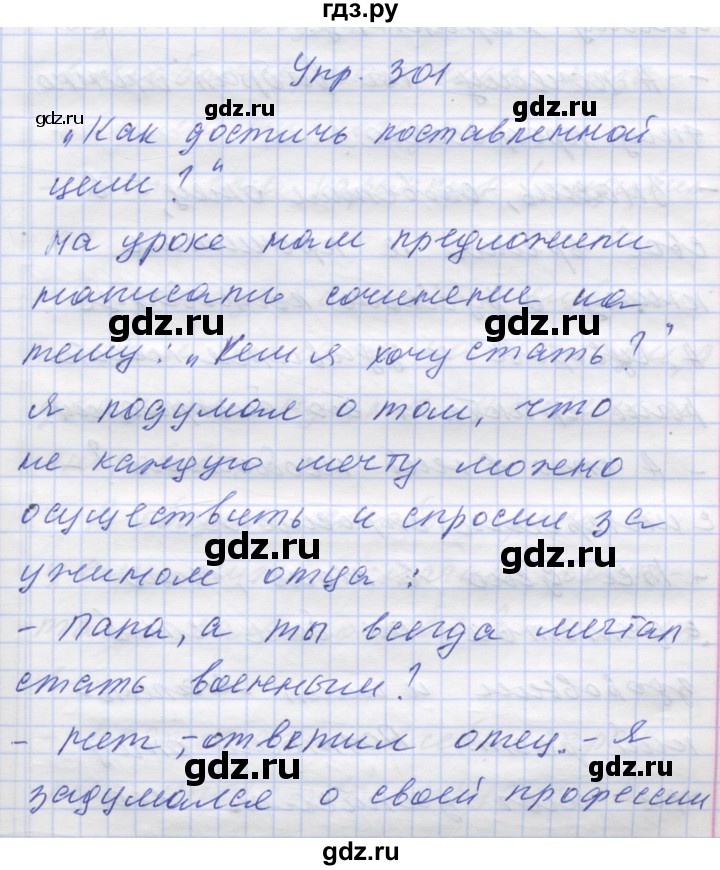 гдз.ру
Упр. 301
gdz.ru
gdz.ru
gdz.ru
„Как достичь поставленной
цели?“
На уроке нам предложили
написать сочинение на
gdz.ru
gdz.ru
тему: „Кем я хочу стать?“
Я подумал о том, что
не каждую мечту можно
осуществить и спросил за
gdz.ru
gdz.ru
ужином отца:
- Папа, а ты всегда мечтал
стать военным?
- Нет, - ответил отец. - Я
gdz.ru
gdz.ru
задумался о своей профессии
gdz.ru